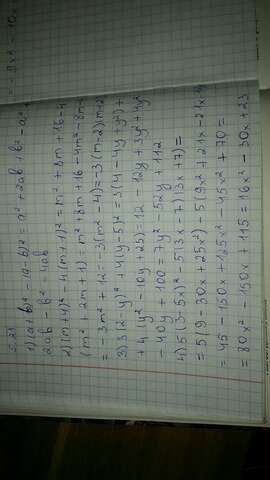 5.21
1) (a+b)² - (a-b)² = a² + 2ab + b² - a² +
2ab - b² = 4ab
2) (m+4)² - 4(m+1)² = m² + 8m + 16 - 4
(m² + 2m + 1) = m² + 8m + 16 - 4m² - 8m - 4
= -3m² + 12 = -3(m² - 4) = -3(m-2)(m+2
3) 3(2-y)² + 4(y-5)² = 3(4 - 4y + y²) +
+ 4(y² - 10y + 25) = 12 - 12y + 3y² + 4y²
- 40y + 100 = 7y² - 52y + 112
4) 5(3-5x)² - 5(3x-7)(3x+7) =
= 5(9 - 30x + 25x²) - 5(9x² + 21x - 21x
= 45 - 150x + 125x² - 45x² + 70 =
= 80x² - 150x + 115 = 16x² - 30x + 23